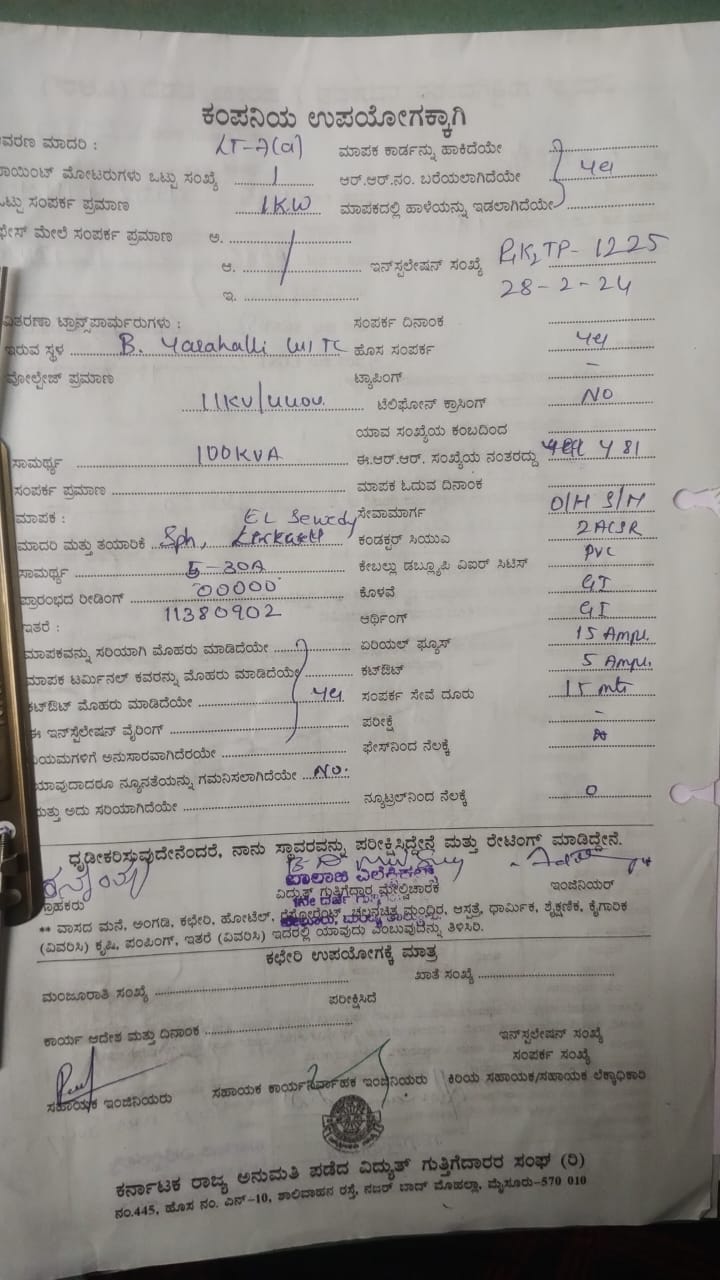 ಕಂಪನಿಯ ಉಪಯೋಗಕ್ಕಾಗಿ
ವರಣ ಮಾದರಿ : LT-7(a) ಮಾಪಕ ಕಾರ್ಡನ್ನು ಹಾಕಿದೆಯೇ
ಾಯಿಂಟ್ ಮೋಟರುಗಳು ಒಟ್ಟು ಸಂಖ್ಯೆ 1 ಆರ್.ಆರ್.ನಂ. ಬರೆಯಲಾಗಿದೆಯೇ yes
ಒಟ್ಟು ಸಂಪರ್ಕ ಪ್ರಮಾಣ 1KW ಮಾಪಕದಲ್ಲಿ ಹಾಳೆಯನ್ನು ಇಡಲಾಗಿದೆಯೇ
ಫೇಸ್ ಮೇಲೆ ಸಂಪರ್ಕ ಪ್ರಮಾಣ ಅ.
ಆ. ಇನ್‌ಸ್ಟಲೇಷನ್ ಸಂಖ್ಯೆ TP-1225
ಇ. 28-2-24
ವಿತರಣಾ ಟ್ರಾನ್ಸ್‌ಪಾರ್ಮರುಗಳು : ಸಂಪರ್ಕ ದಿನಾಂಕ
ಇರುವ ಸ್ಥಳ B. ಹೊಸ ಸಂಪರ್ಕ yes
ವೋಲ್ಟೇಜ್ ಪ್ರಮಾಣ ಟ್ಯಾಪಿಂಗ್ -
11KV/440V. ಟೆಲಿಫೋನ್ ಕ್ರಾಸಿಂಗ್ NO
ಯಾವ ಸಂಖ್ಯೆಯ ಕಂಬದಿಂದ
ಸಾಮರ್ಥ್ಯ 100KVA ಈ.ಆರ್.ಆರ್. ಸಂಖ್ಯೆಯ ನಂತರದ್ದು 481
ಸಂಪರ್ಕ ಪ್ರಮಾಣ ಮಾಪಕ ಓದುವ ದಿನಾಂಕ
ಮಾಪಕ : EL Sewedy ಸೇವಾಮಾರ್ಗ O/H S/M
ಮಾದರಿ ಮತ್ತು ತಯಾರಿಕೆ Sph, ಕಂಡಕ್ಟರ್ ಸಿಯುಎ 2ACSR
ಸಾಮರ್ಥ್ಯ 5-30A ಕೇಬಲ್ಲು ಡಬ್ಲ್ಯೂಪಿ ವಿಐರ್ ಸಿಟಿಸ್ PVC
ಪ್ರಾರಂಭದ ರೀಡಿಂಗ್ 00000 ಕೊಳವೆ GI
ಇತರೆ : 11380902 ಆರ್ಥಿಂಗ್ GI
ಮಾಪಕವನ್ನು ಸರಿಯಾಗಿ ಮೊಹರು ಮಾಡಿದೆಯೇ ಏರಿಯಲ್ ಫ್ಯೂಸ್ 15 Amp.
ಮಾಪಕ ಟರ್ಮಿನಲ್ ಕವರನ್ನು ಮೊಹರು ಮಾಡಿದೆಯೇ ಕಟ್‌ಔಟ್ 5 Amp.
ಕಟ್‌ಔಟ್ ಮೊಹರು ಮಾಡಿದೆಯೇ yes ಸಂಪರ್ಕ ಸೇವೆ ದೂರು 15 mtr
ಈ ಇನ್‌ಸ್ಟಲೇಷನ್ ವೈರಿಂಗ್ ಪರೀಕ್ಷೆ -
ಿಯಮಗಳಿಗೆ ಅನುಸಾರವಾಗಿದೆರಯೇ ಫೇಸ್‌ನಿಂದ ನೆಲಕ್ಕೆ
ಯಾವುದಾದರೂ ನ್ಯೂನತೆಯನ್ನು ಗಮನಿಸಲಾಗಿದೆಯೇ NO.
ಮತ್ತು ಅದು ಸರಿಯಾಗಿದೆಯೇ ನ್ಯೂಟ್ರಲ್‌ನಿಂದ ನೆಲಕ್ಕೆ 0
ಧೃಡೀಕರಿಸುವುದೇನೆಂದರೆ, ನಾನು ಸ್ಥಾವರವನ್ನು ಪರೀಕ್ಷಿಸಿದ್ದೇನೆ ಮತ್ತು ರೇಟಿಂಗ್ ಮಾಡಿದ್ದೇನೆ.
ಗ್ರಾಹಕರು ವಿದ್ಯುತ್ ಗುತ್ತಿಗೆದಾರ ಮೇಲ್ವಿಚಾರಕ ಇಂಜಿನಿಯರ್
** ವಾಸದ ಮನೆ, ಅಂಗಡಿ, ಕಛೇರಿ, ಹೋಟೆಲ್, ರೆಸ್ಟೋರೆಂಟ್, ಚಲನಚಿತ್ರ ಮಂದಿರ, ಆಸ್ಪತ್ರೆ, ಧಾರ್ಮಿಕ, ಶೈಕ್ಷಣಿಕ, ಕೈಗಾರಿಕ
(ವಿವರಿಸಿ) ಕೃಷಿ, ಪಂಪಿಂಗ್, ಇತರೆ (ವಿವರಿಸಿ) ಇದರಲ್ಲಿ ಯಾವುದು ಎಂಬುವುದನ್ನು ತಿಳಿಸಿರಿ.
ಕಛೇರಿ ಉಪಯೋಗಕ್ಕೆ ಮಾತ್ರ
ಮಂಜೂರಾತಿ ಸಂಖ್ಯೆ ಖಾತೆ ಸಂಖ್ಯೆ
ಪರೀಕ್ಷಿಸಿದೆ
ಕಾರ್ಯ ಆದೇಶ ಮತ್ತು ದಿನಾಂಕ ಇನ್‌ಸ್ಟಲೇಷನ್ ಸಂಖ್ಯೆ
ಸಂಪರ್ಕ ಸಂಖ್ಯೆ
ಸಹಾಯಕ ಇಂಜಿನಿಯರು ಸಹಾಯಕ ಕಾರ್ಯನಿರ್ವಾಹಕ ಇಂಜಿನಿಯರು ಕಿರಿಯ ಸಹಾಯಕ/ಸಹಾಯಕ ಲೆಕ್ಕಾಧಿಕಾರಿ
ಕರ್ನಾಟಕ ರಾಜ್ಯ ಅನುಮತಿ ಪಡೆದ ವಿದ್ಯುತ್ ಗುತ್ತಿಗೆದಾರರ ಸಂಘ (ರಿ)
ನಂ.445, ಹೊಸ ನಂ. ಎನ್-10, ಶಾಲಿವಾಹನ ರಸ್ತೆ, ನಜರ್ ಬಾದ್ ಮೊಹಲ್ಲಾ, ಮೈಸೂರು-570 010